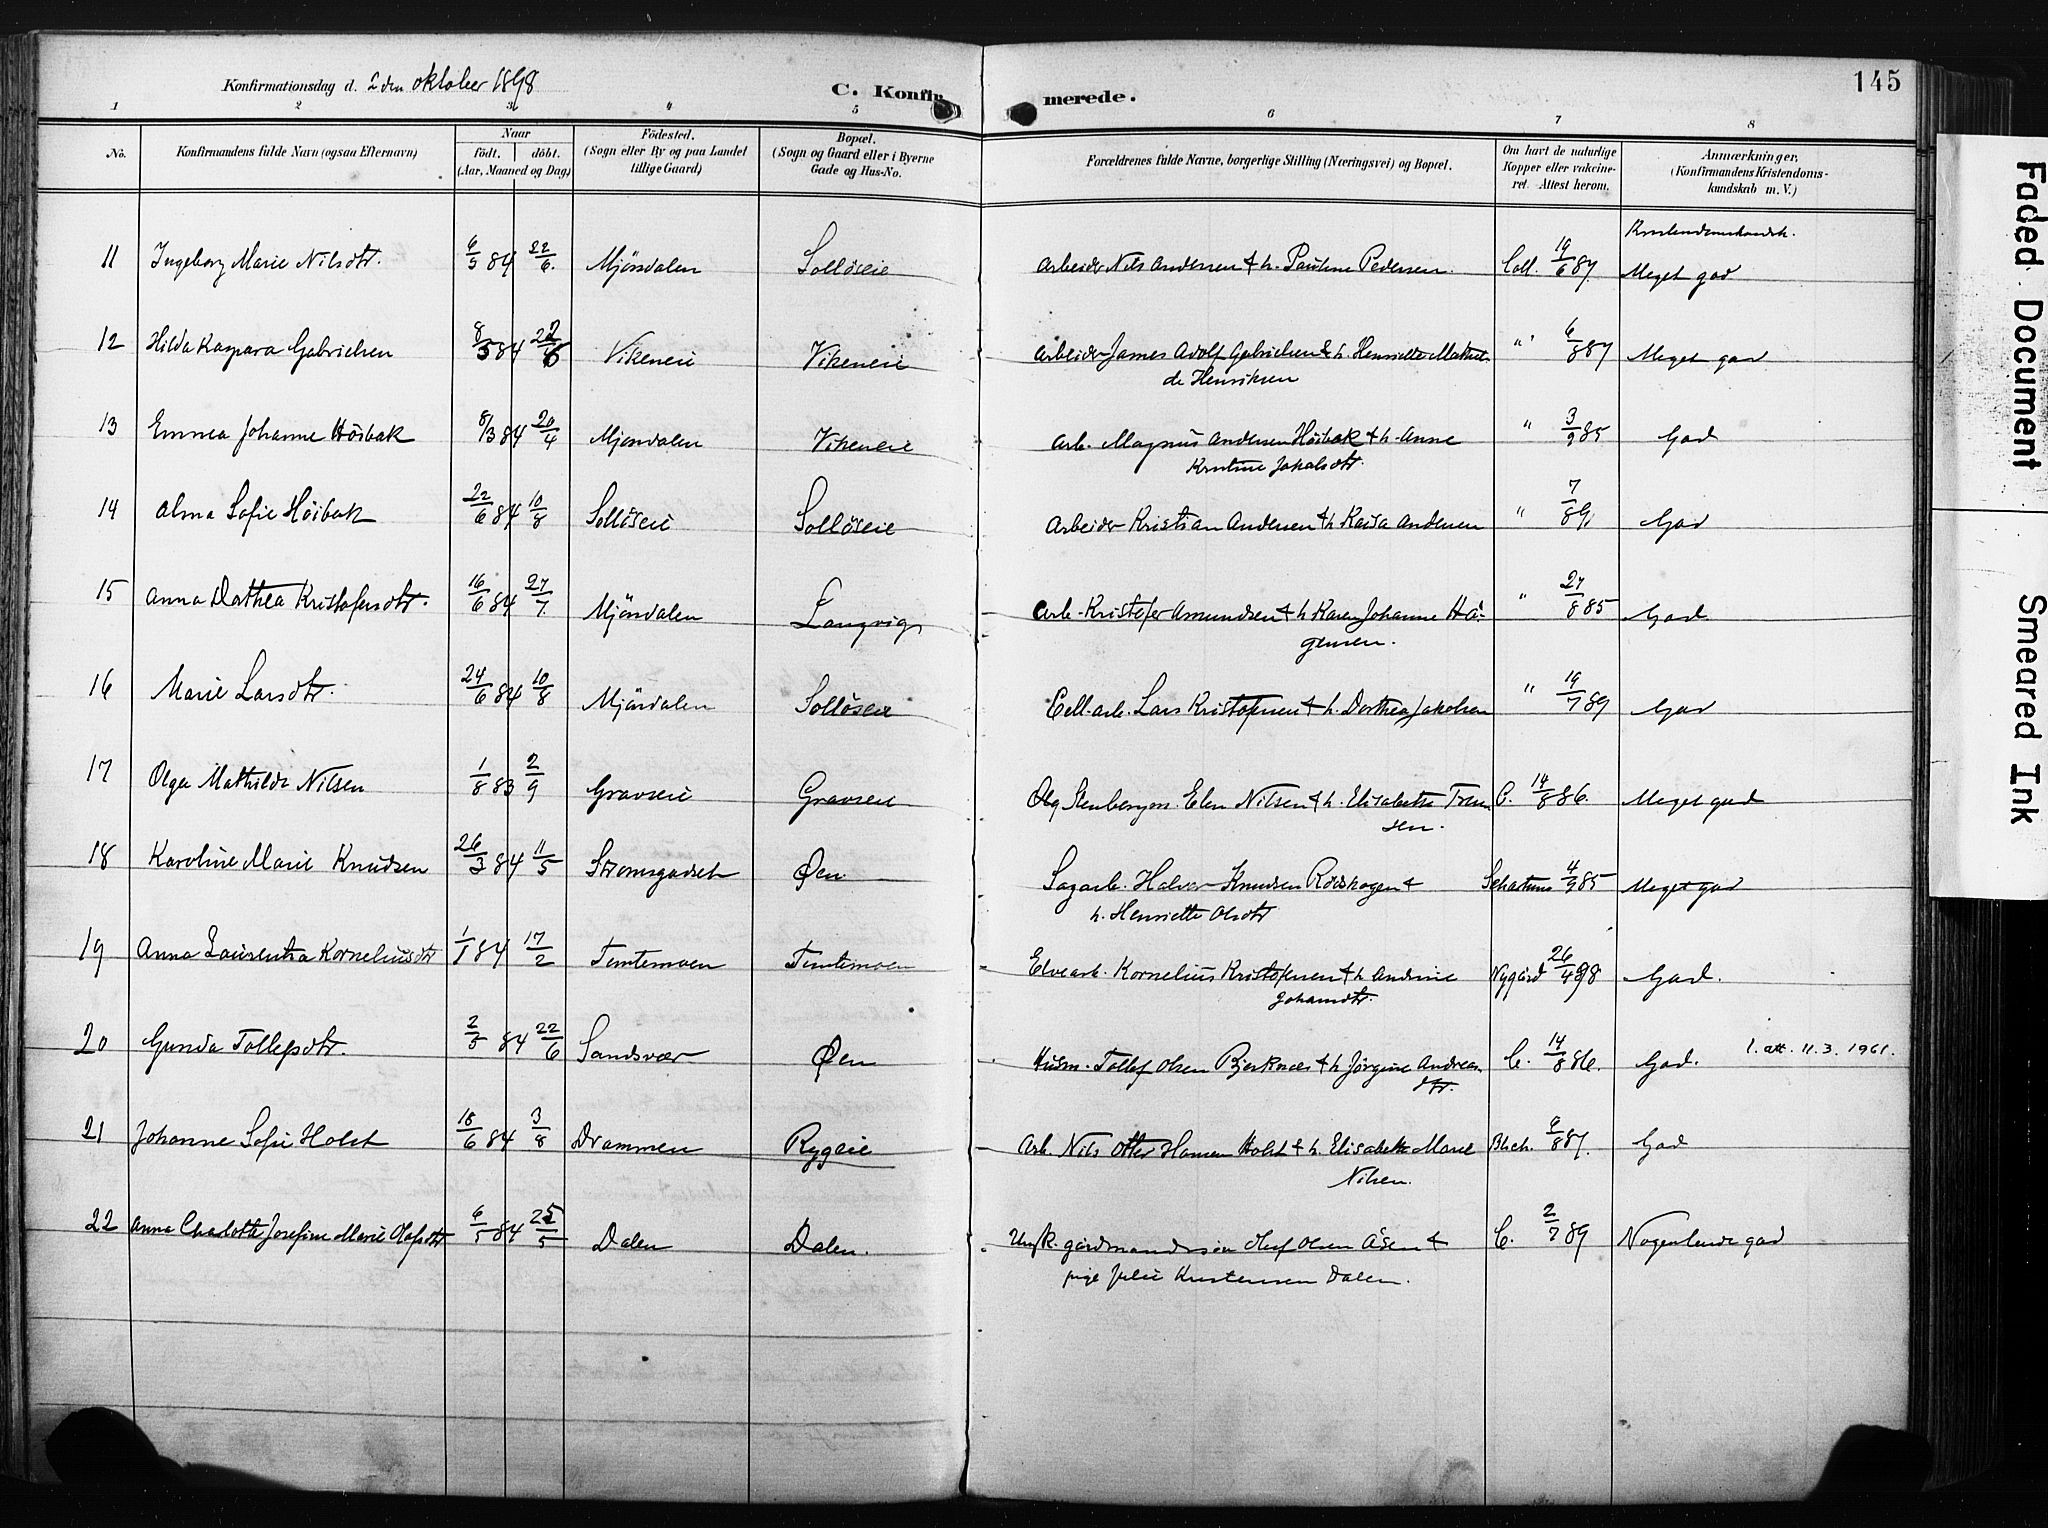 Konfirmationsdag d. 2den oktober 1898
C. Konfirmerede.
145
1 2 3 " 5 6 7 8
No.
Konfirmandens fulde Navn (ogsaa Efternavn)
Naar
födt. döbt.
(Aar, Maaned og Dag)
Födested.
(Sogn eller By og paa Landet
tillige Gaard)
Bopæl.
(Sogn og Gaard eller i Byerne
Gade og Hus-No.
Forældrenes fulde Navne, borgerlige Stilling (Næringsvei) og Bopæl.
Om havt de naturlige
Kopper eller vakcine-
ret. Attest herom.
Anmærkninger,
(Konfirmandens Kristendoms-
kundskab m. V.)
11 Ingeborg Marie Nilsdtr. 6/5 84 22/6. Mjöndalen Solløseie Arbeider Nils Andersen & h. Pauline Pedersen. Coll. 19/6 87. Meget god
12 Hilda Kaspara Gabrielsen 8/5 84 22/6 Vikeneie Vikeneie Arbeider James Adolf Gabrielsen & h. Henriette Matil-
de Henriksen " 6/8 87 Meget god
13 Emma Johanne Höibak 8/3 84 20/4 Mjöndalen Vikeneie Arb. Magnus Andersen Höibak & h. Anne
Kristine Jakobsdtr. " 3/9 85 God
14 Alma Sofie Höibak 22/6 84 10/8 Solløseie Solløseie Arbeider Kristian Andersen & h. Kaisa Andersen " 7/8 89 God
15 Anna Dorthea Kristofersdtr. 16/6 84 27/7 Mjöndalen Langvig Arb. Kristofer Amundsen & h. Karen Johanne Hå-
gensen. " 27/8 85 God.
16 Marie Larsdtr. 24/6 84 10/8 Mjöndalen Solløseie Cell. arb. Lars Kristofersen & h. Dorthea Jakobsen " 19/7 89 God
17 Olga Mathilde Nilsen 1/8 83 2/9 Gravseie Gravseie Nilsen & h. Elisabeth C. 14/8 86. Meget god
18 Karoline Marie Knudsen 26/3 84 11/5 Strømsgodset Øen Sagarb. Halvor Knudsen Rødskogen &
h. Henriette Olsdtr 4/9 85 Meget god
19 Anna Laurentza Korneliusdtr 1/1 84 17/2 Temtemoen Temtemoen Elvearb. Kornelius Kristofersen & h. Andrine
Johansdtr. Nygård 26/4 98 God.
20 Gunda Tollefsdtr. 2/5 84 22/6 Sandsvær Øen Husm. Tollef Olsen Bjerknæs & h. Jørgine Andreas-
dtr. C. 14/8 86. God. 1. att. 11.3.1961.
21 Johanne Sofie Holst 18/6 84 3/8 Drammen Rygeie Arb. Nils Otter Hansen Holst & h. Elisabeth Marie
Nilsen. 9/8 87. God
22 Anna Charlotte Josefine Marie Olafsdtr 6/5 84 25/5 Dalen Dalen. Ungk. gårdmandssön Oluf Olsen Åsen &
pige Julie Kristensen Dalen. C. 2/7 89 Nogenlunde god
Faded Document
Smeared Ink